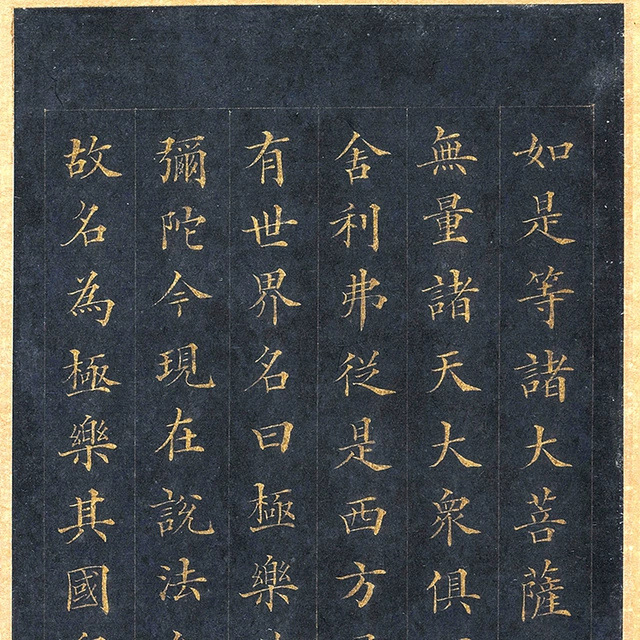 如是等諸大菩薩
無量諸天大眾俱
舍利弗從是西方
有世界名曰極樂
彌陀今現在說法
故名為極樂其國